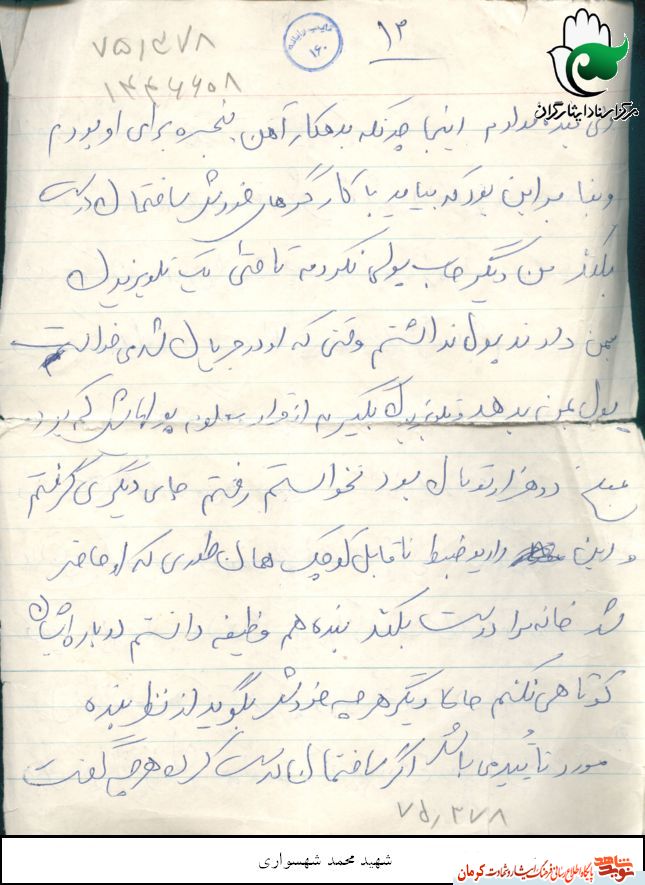 ۱۳
۷۵,۳۷۸
۱۴۴۶۶۰۸
۱۶۰
مرکز اسناد ایثارگران
اینجا چونکه بدهکار آهن پنجره برای او بودم
و بنا بر این بود که بیاید با کارگرهای خودش ساختمان درست
بکند من دیگر حساب پولی نکردم تا حتی یک تلویزیون
بمن دادند پول نداشتم وقتی که او در جریان شد می خواست
پول بمن بدهد تلویزیون بگیرم از قرار معلوم پولهایش که بود
مبلغ دو هزار تومان بود نخواستم رفتم جای دیگری گرفتم
و این رادیو ضبط ناقابل کوچک همان طوری که او حاضر
شد خانه مرا درست بکند بنده هم وظیفه دانستم درباره ایشان
کوتاهی نکنم حالا دیگر هر چه خودش بگوید از نظر بنده
مورد تأیید می باشد اگر ساختمان درست کرده هر چه گفت
۷۵,۳۷۸
شهید محمد شهسواری
نوید شاهد
پایگاه اطلاع رسانی فرهنگ ایثار و شهادت کرمان